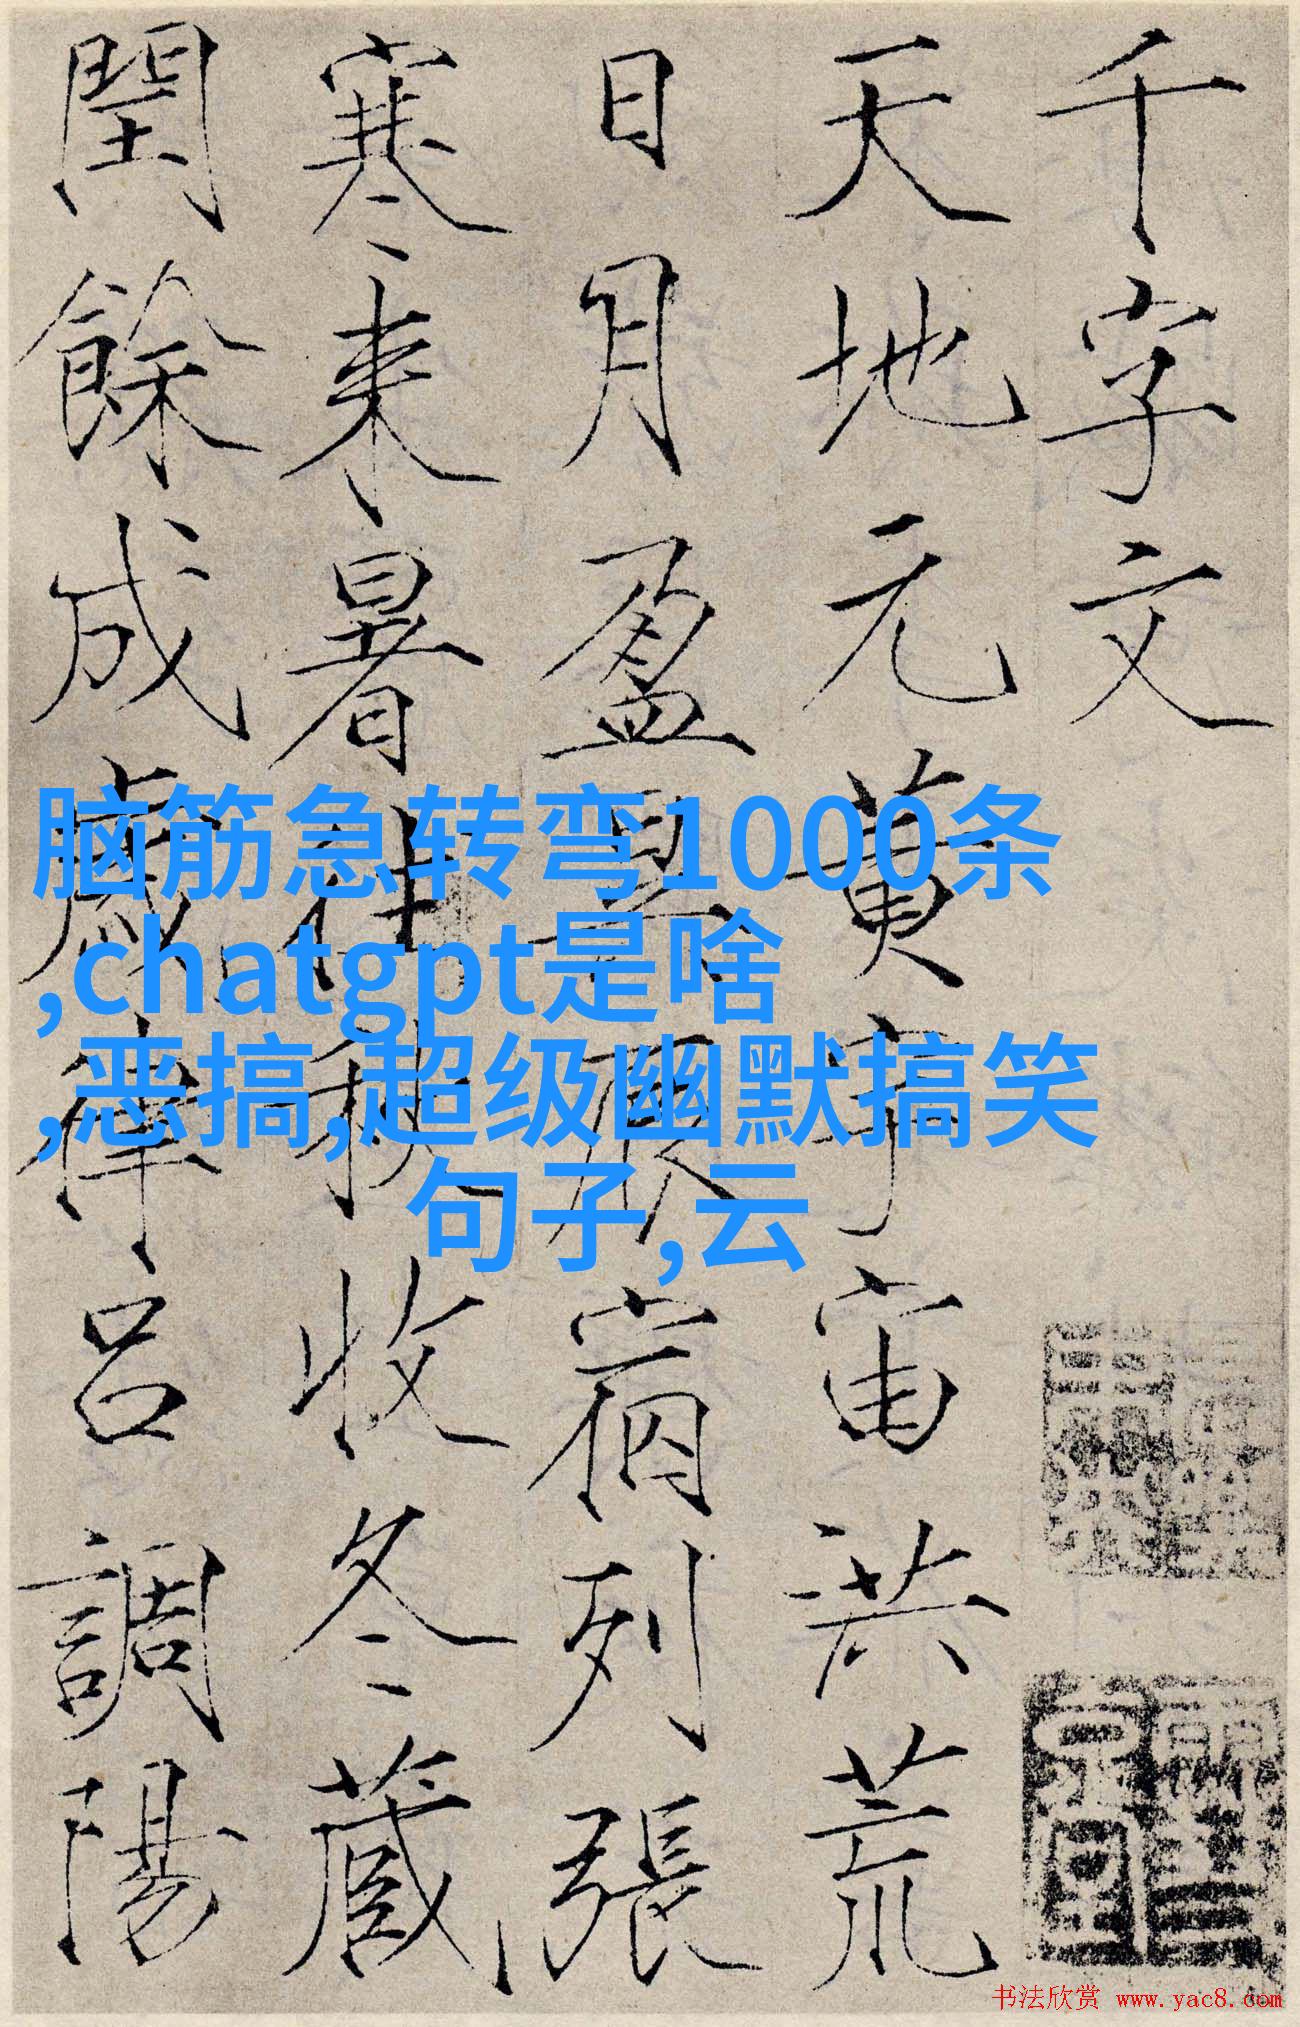 千字文
天地元黄宇宙洪荒
日月盈昃辰宿列張
寒来暑往秋收冬蔵
閏餘成歲律呂調陽
脑筋急转弯1000条
,chatgpt是啥
,恶搞,超级幽默搞笑
句子,云
书法欣赏 www.yac8.com